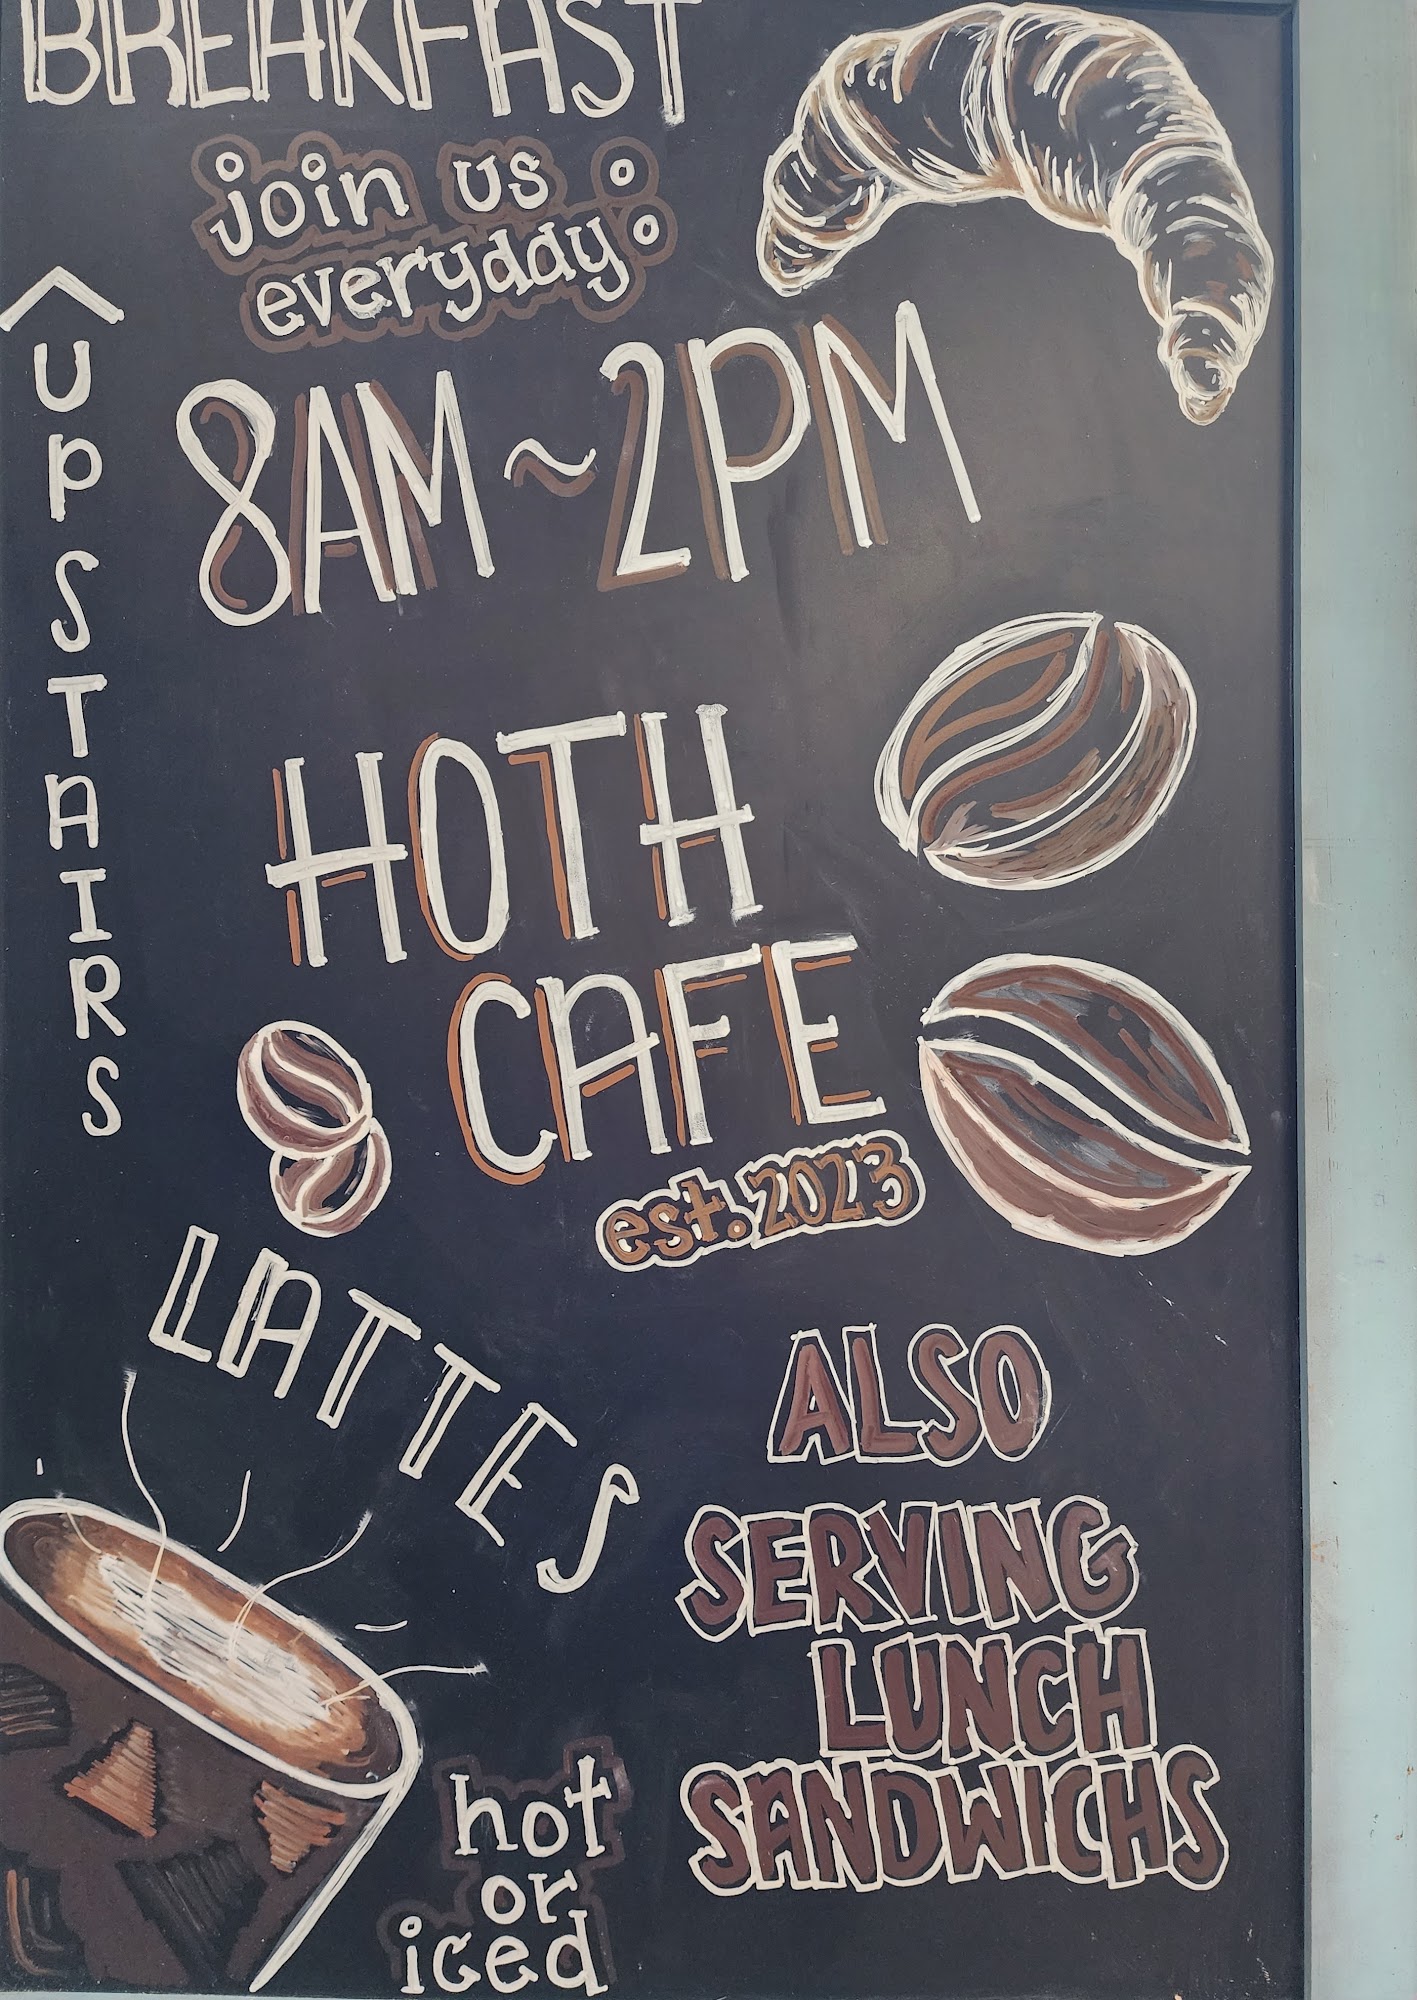 BREAKFAST
join us
everyday:
8AM ~ 2PM
UPSTAIRS
HOTH
CAFE
est. 2023
LATTES
hot
or
iced
ALSO
SERVING
LUNCH
SANDWICHS